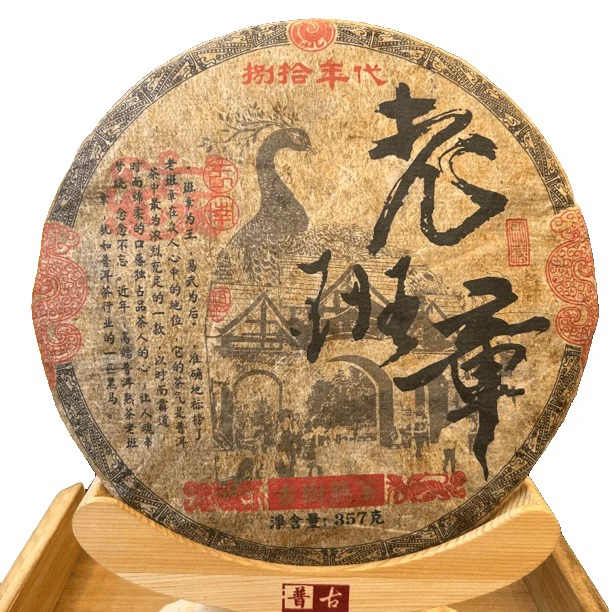 捌拾年代
老班章
班章为王，易武为后。准确地标榜了
老班章在众人心中的地位，它的茶气是普洱
茶中最为浓烈充足的一款，以时而霸道，
时而绵柔的口感独占品茶人的心，让人魂牵
梦绕，念念不忘。近年，高端普洱熟茶老班
章，犹如普洱茶行业的一匹黑马。
淨含量：357克
普古